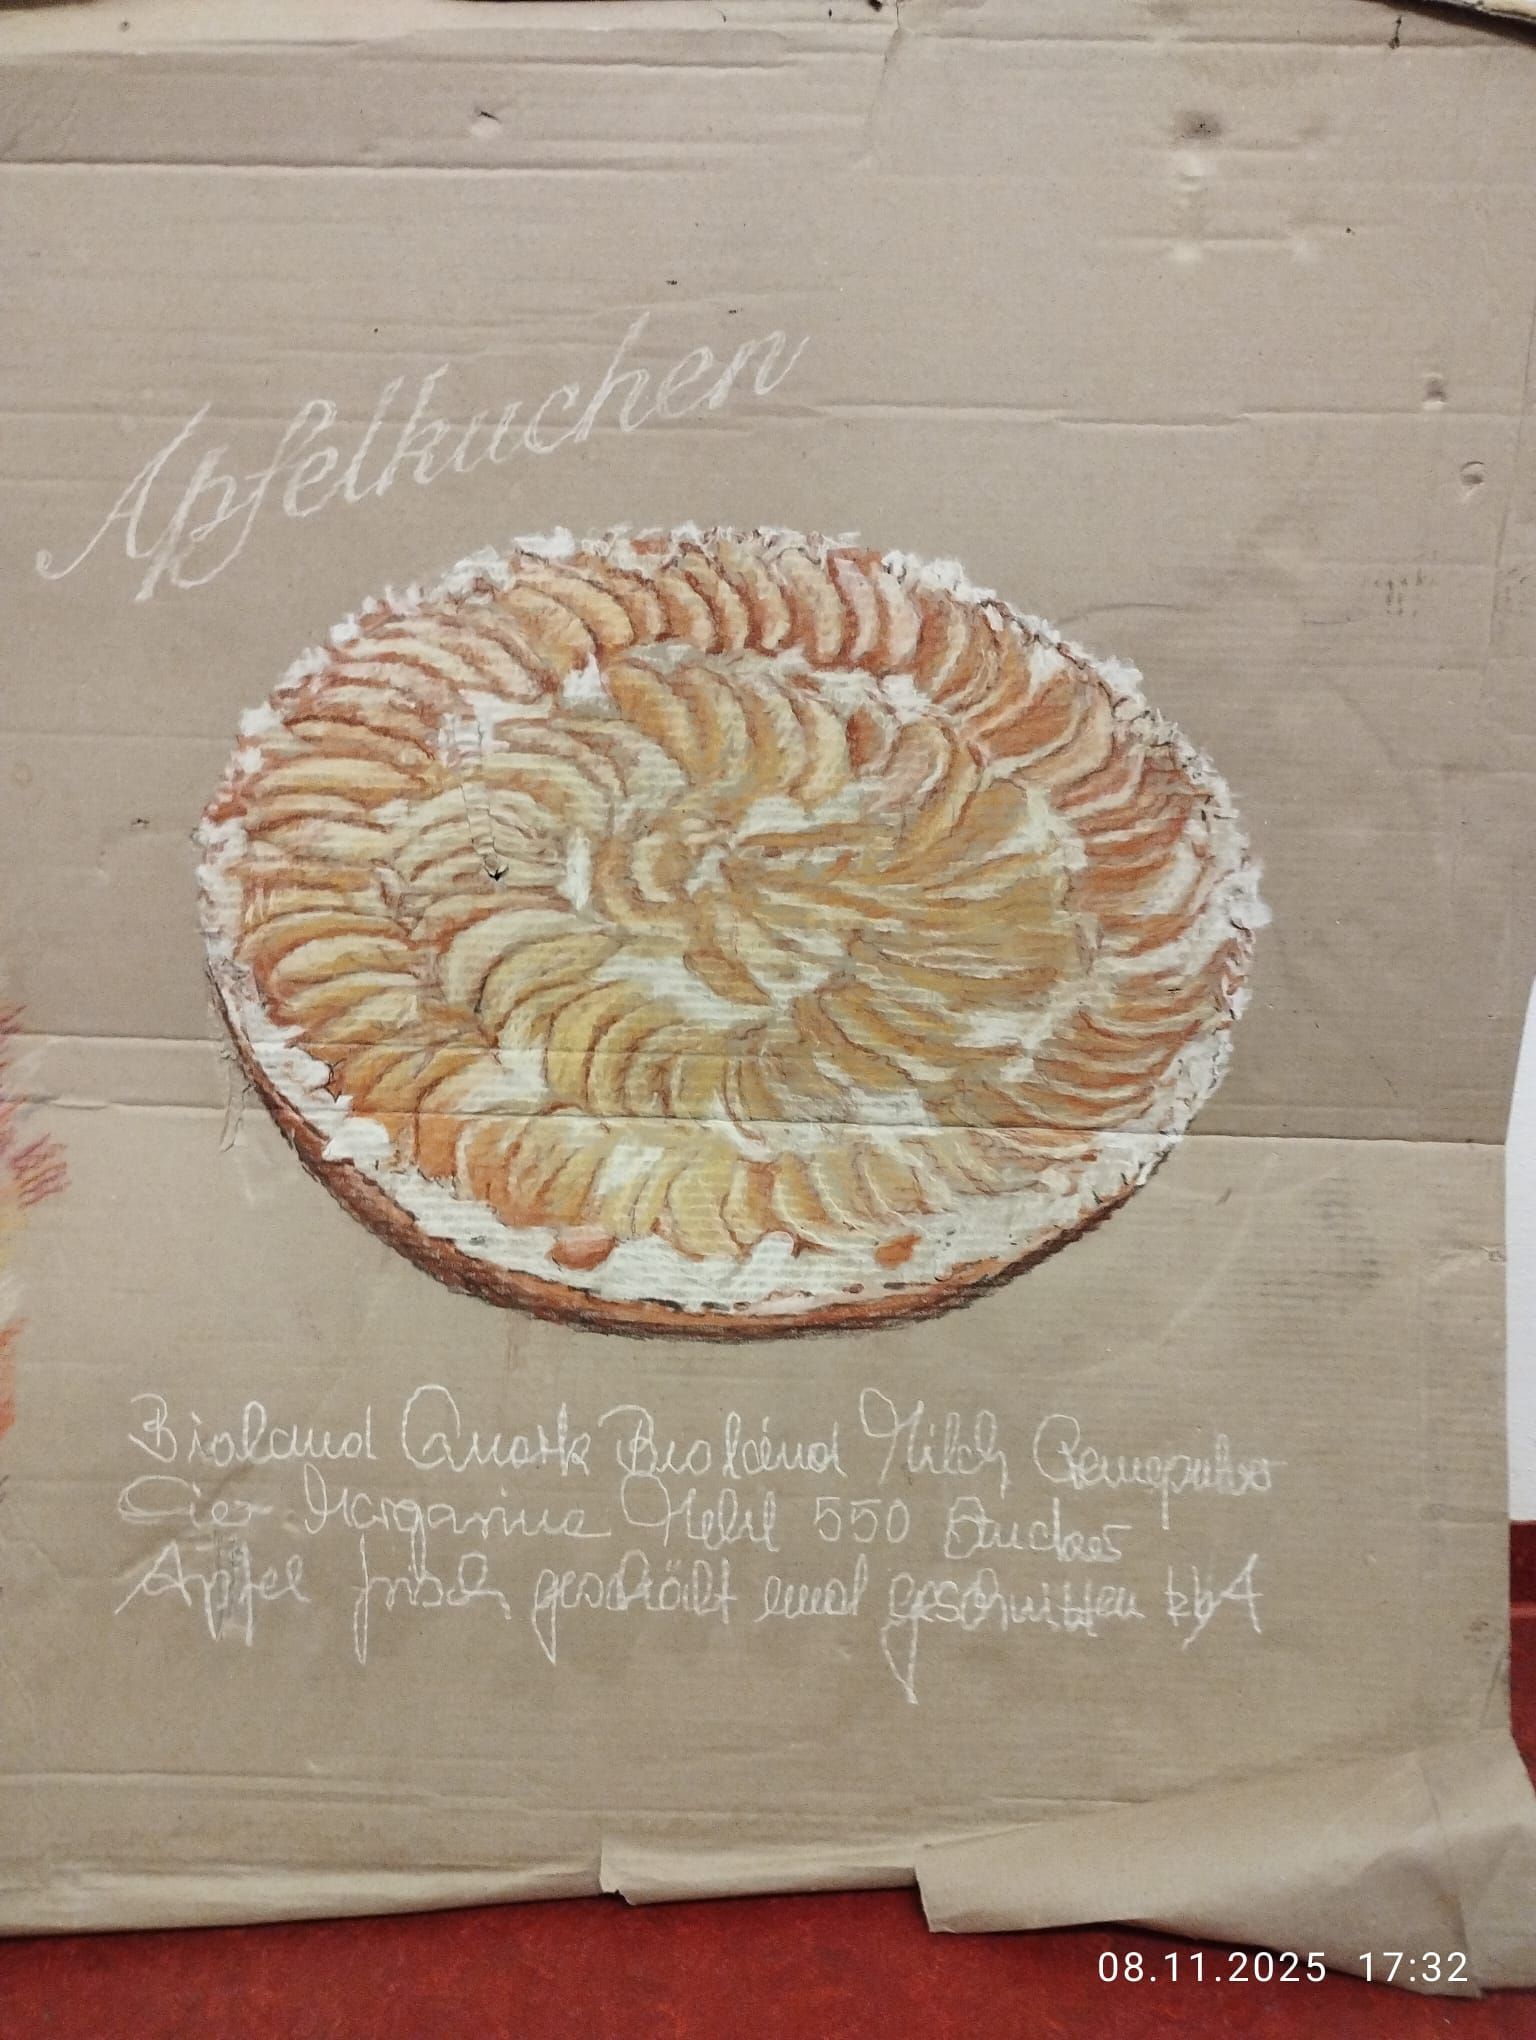 Apfelkuchen
Bioland Quark Bioland Milch
Eier Margarine Mehl 550 Zucker
Äpfel frisch geschält und geschnitten kbA
08.11.2025 17:32